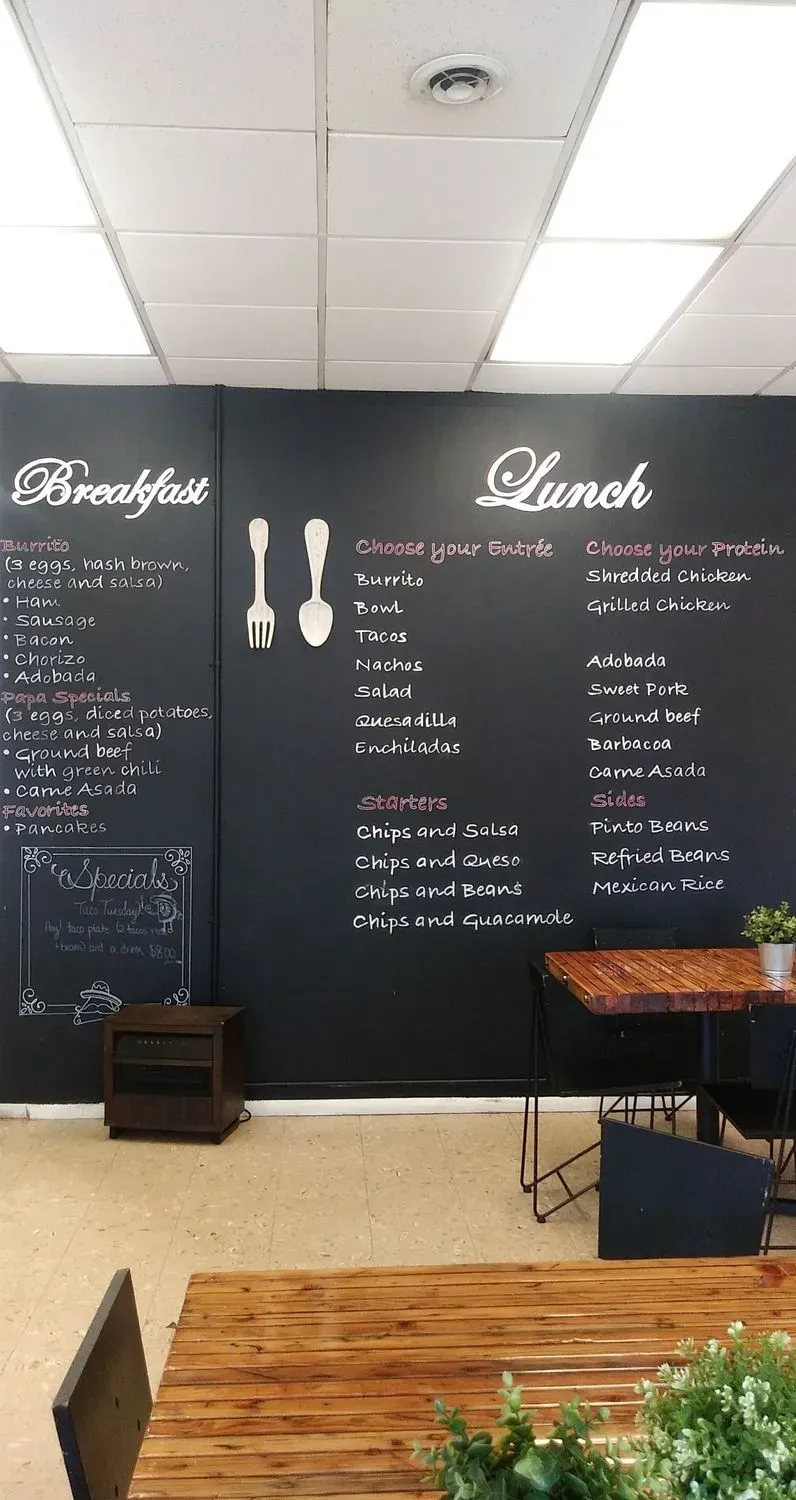 Breakfast
Burrito
(3 eggs, hash brown,
cheese and salsa)
• Ham
• Sausage
• Bacon
• Chorizo
• Adobada
Papa Specials
(3 eggs, diced potatoes,
cheese and salsa)
• Ground beef
with green chili
• Carne Asada
Favorites
• Pancakes
Specials
Taco Tuesday!
taco plate (2 tacos
and a drink $8.00
Lunch
Choose your Entrée
Burrito
Bowl
Tacos
Nachos
Salad
Quesadilla
Enchiladas
Starters
Chips and Salsa
Chips and Queso
Chips and Beans
Chips and Guacamole
Choose your Protein
Shredded Chicken
Grilled Chicken
Adobada
Sweet Pork
Ground beef
Barbacoa
Carne Asada
Sides
Pinto Beans
Refried Beans
Mexican Rice